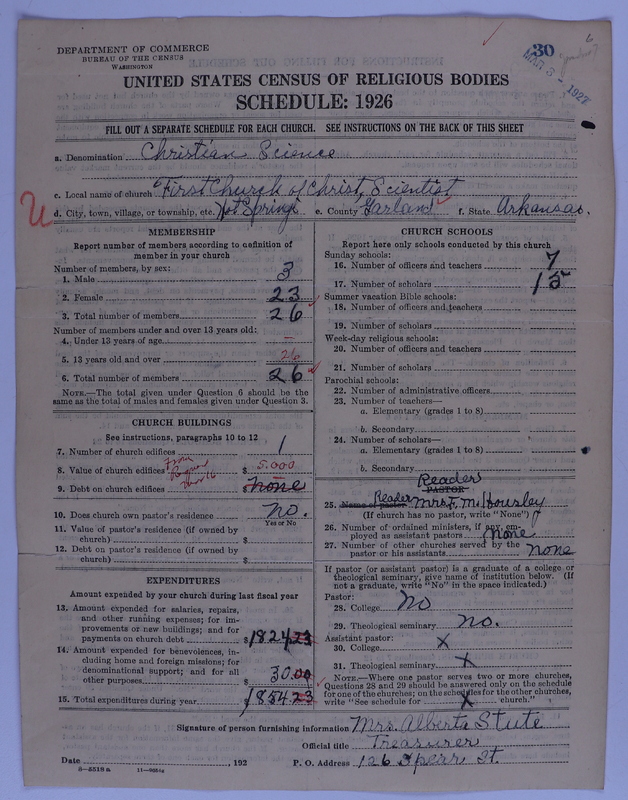 DEPARTMENT OF COMMERCE
BUREAU OF THE CENSUS
WASHINGTON
30
MAR 5 - 1927
6
UNITED STATES CENSUS OF RELIGIOUS BODIES
SCHEDULE: 1926
FILL OUT A SEPARATE SCHEDULE FOR EACH CHURCH. SEE INSTRUCTIONS ON THE BACK OF THIS SHEET
a. Denomination Christian Science
c. Local name of church First Church of Christ, Scientist
d. City, town, village, or township, etc. Hot Springs e. County Garland f. State Arkansas.
MEMBERSHIP
Report number of members according to definition of
member in your church
Number of members, by sex:
1. Male 3
2. Female 23
3. Total number of members 26
Number of members under and over 13 years old:
4. Under 13 years of age –
5. 13 years old and over 26
6. Total number of members 26
NOTE.—The total given under Question 6 should be the
same as the total of males and females given under Question 3.
CHURCH BUILDINGS
See instructions, paragraphs 10 to 12
7. Number of church edifices 1
8. Value of church edifices $ 5.000
From
9. Debt on church edifices $ none
10. Does church own pastor's residence no.
Yes or No
11. Value of pastor's residence (if owned by
church) $
12. Debt on pastor's residence (if owned by
church) $
EXPENDITURES
Amount expended by your church during last fiscal year
13. Amount expended for salaries, repairs,
and other running expenses; for im-
provements or new buildings; and for
payments on church debt $1824.23
14. Amount expended for benevolences, in-
cluding home and foreign missions; for
denominational support; and for all
other purposes $ 30.00
15. Total expenditures during year $1854.23
CHURCH SCHOOLS
Report here only schools conducted by this church
Sunday schools:
16. Number of officers and teachers 7
17. Number of scholars 15
Summer vacation Bible schools:
18. Number of officers and teachers
19. Number of scholars
Week-day religious schools:
20. Number of officers and teachers
21. Number of scholars
Parochial schools:
22. Number of administrative officers
23. Number of teachers—
a. Elementary (grades 1 to 8)
b. Secondary
24. Number of scholars—
a. Elementary (grades 1 to 8)
b. Secondary
Reader
PASTOR
25. Name of pastor Reader Mrs. F. M. Housley
(If church has no pastor, write "None")
26. Number of ordained ministers, if any, em-
ployed as assistant pastors none
27. Number of other churches served by the
pastor or his assistants none
If pastor (or assistant pastor) is a graduate of a college or
theological seminary, give name of institution below. (If
not a graduate, write "No" in the space indicated.)
Pastor:
28. College No
29. Theological seminary no.
Assistant pastor:
30. College X
31. Theological seminary X
NOTE.—Where one pastor serves two or more churches,
Questions 28 and 29 should be answered only on the schedule
for one of the churches; on the schedules for the other churches,
write "See schedule for X church."
Signature of person furnishing information Mrs. Alberta Stute
Official title Treasurer
Date , 192 P. O. Address 126 Spear St.
8—5518 a